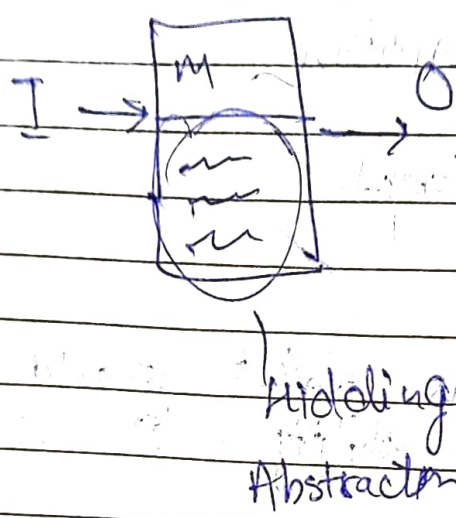 M
I
O
Hiddling
Abstractn